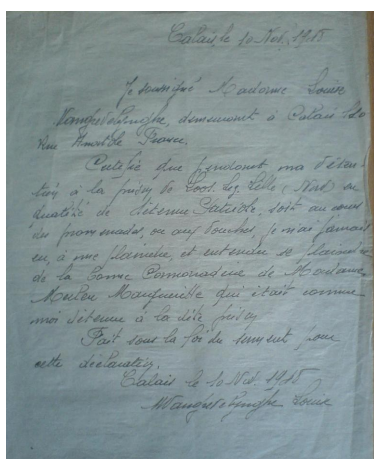 Calais, le 10 Nov. 1945
Je soussigné Madame Louise
demeurant à Calais
Rue Anatole France.
Certifie que pendant ma déten
tion à la prison de Loos-lez-Lille (Nord) en
qualité de détenue soit au cours
des promenades, ou aux douches, je n'ai jamais
eu, à me plaindre, et entendu se plaindre
de la bonne Camaraderie de Madame
qui était comme
moi détenue à la dite prison
Fait sous la foi du serment pour
cette déclaration.
Calais le 10 Nov. 1945
Louise